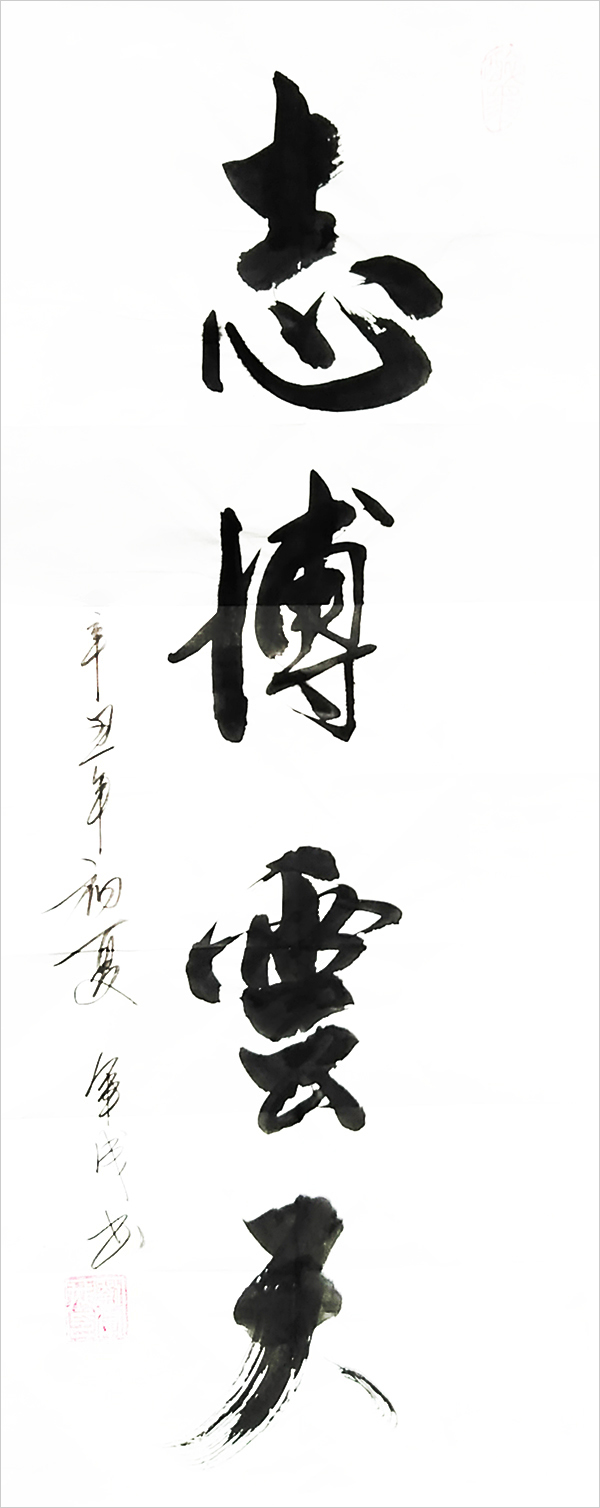 志博雲天
辛丑年初夏 軍 书